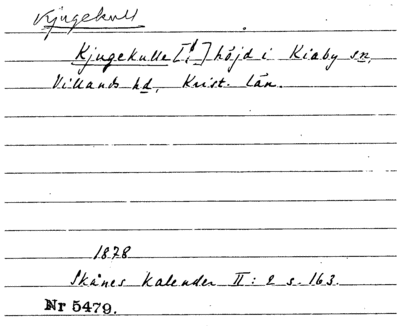 Kjugekull
Kjugekulle [!] höjd i Kiaby sn,
Villands hd, Krist. län.
1878
Skånes Kalender II: 2 s. 163.
Nr 5479.